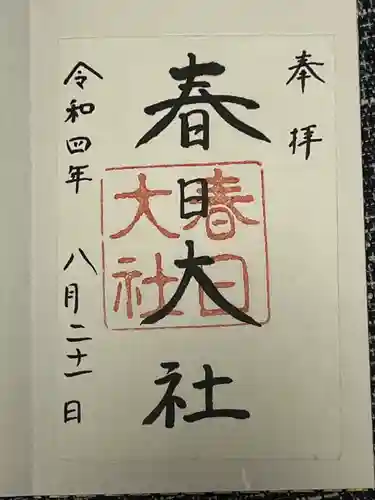 奉拝
春日大社
春日
大社
令和四年 八月二十一日